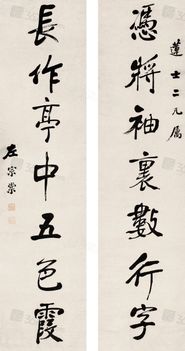 蓮士二兄屬
憑將袖裏數行字
長作亭中五色霞
左宗棠